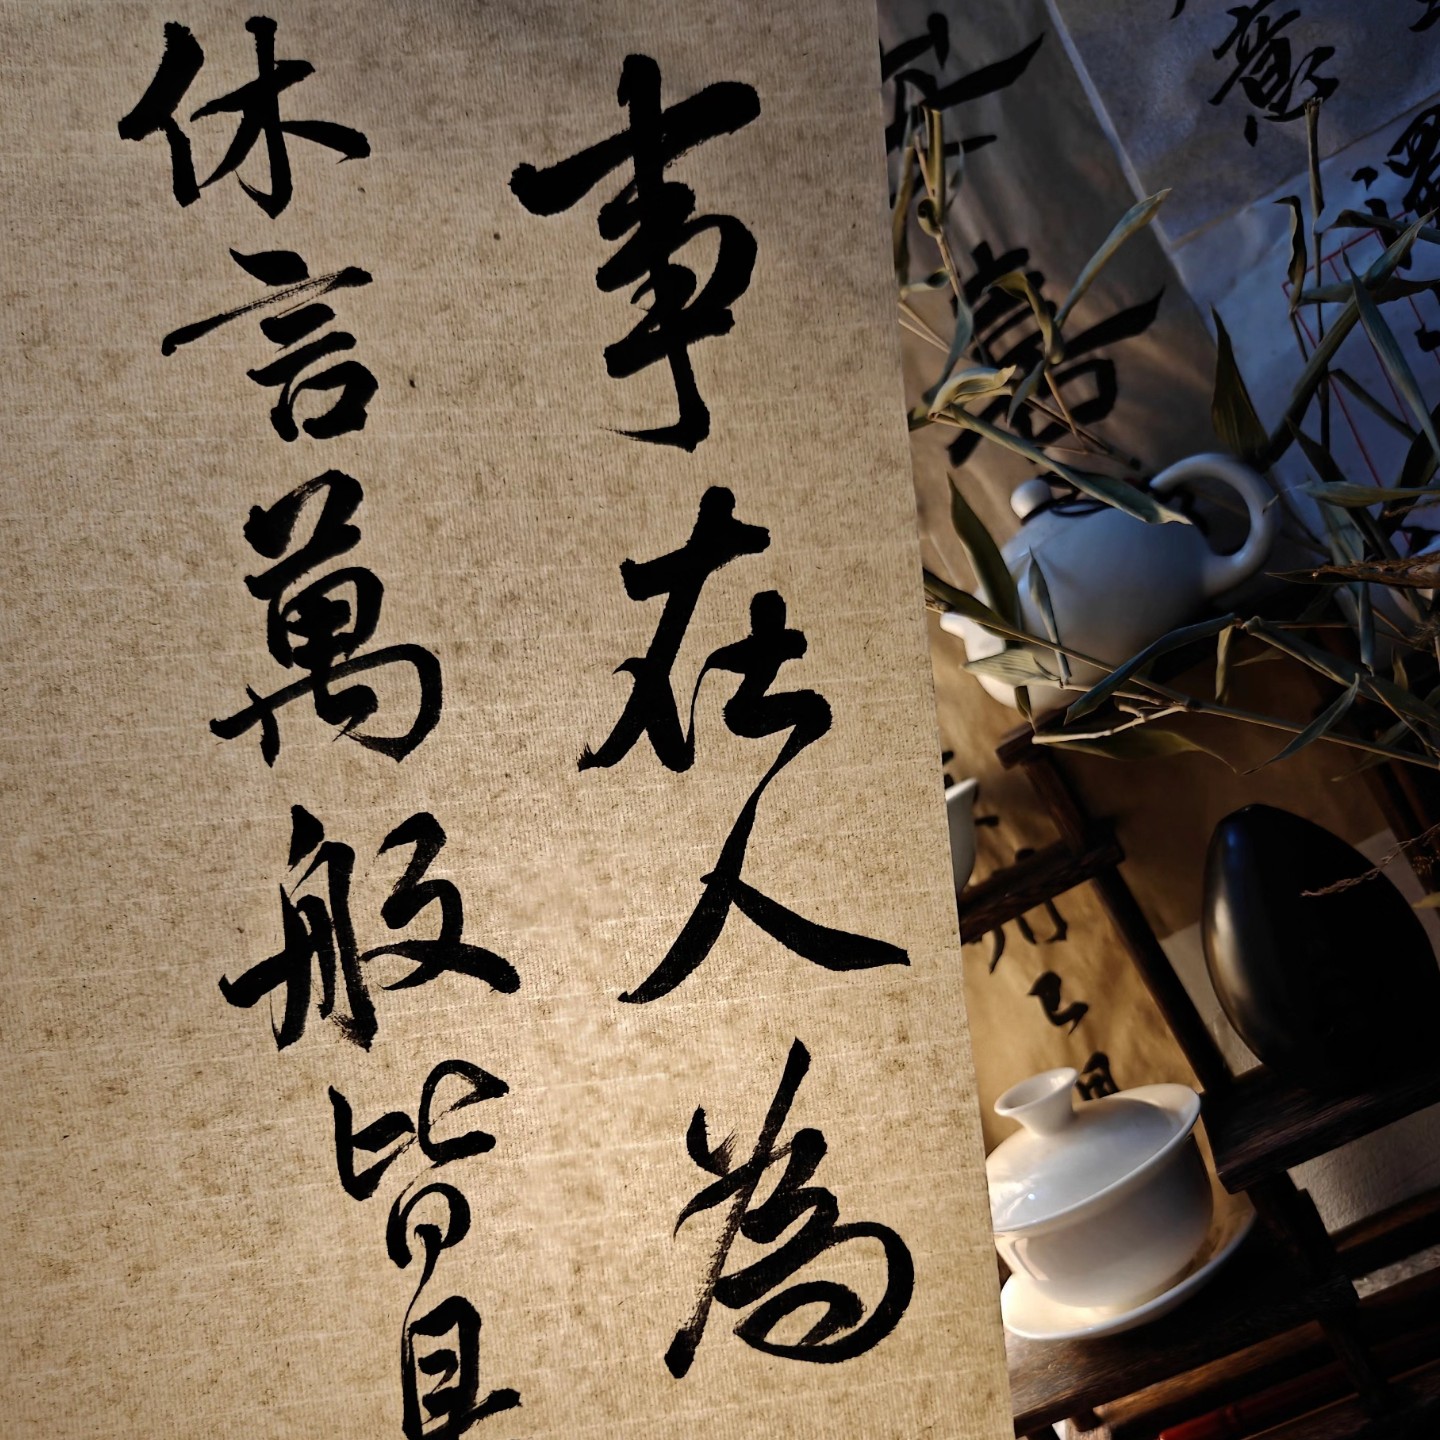 事在人為
休言萬般皆